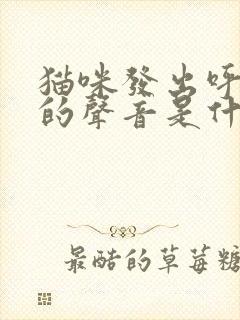 猫咪發出呼
的聲音是什
最酷的草莓糖